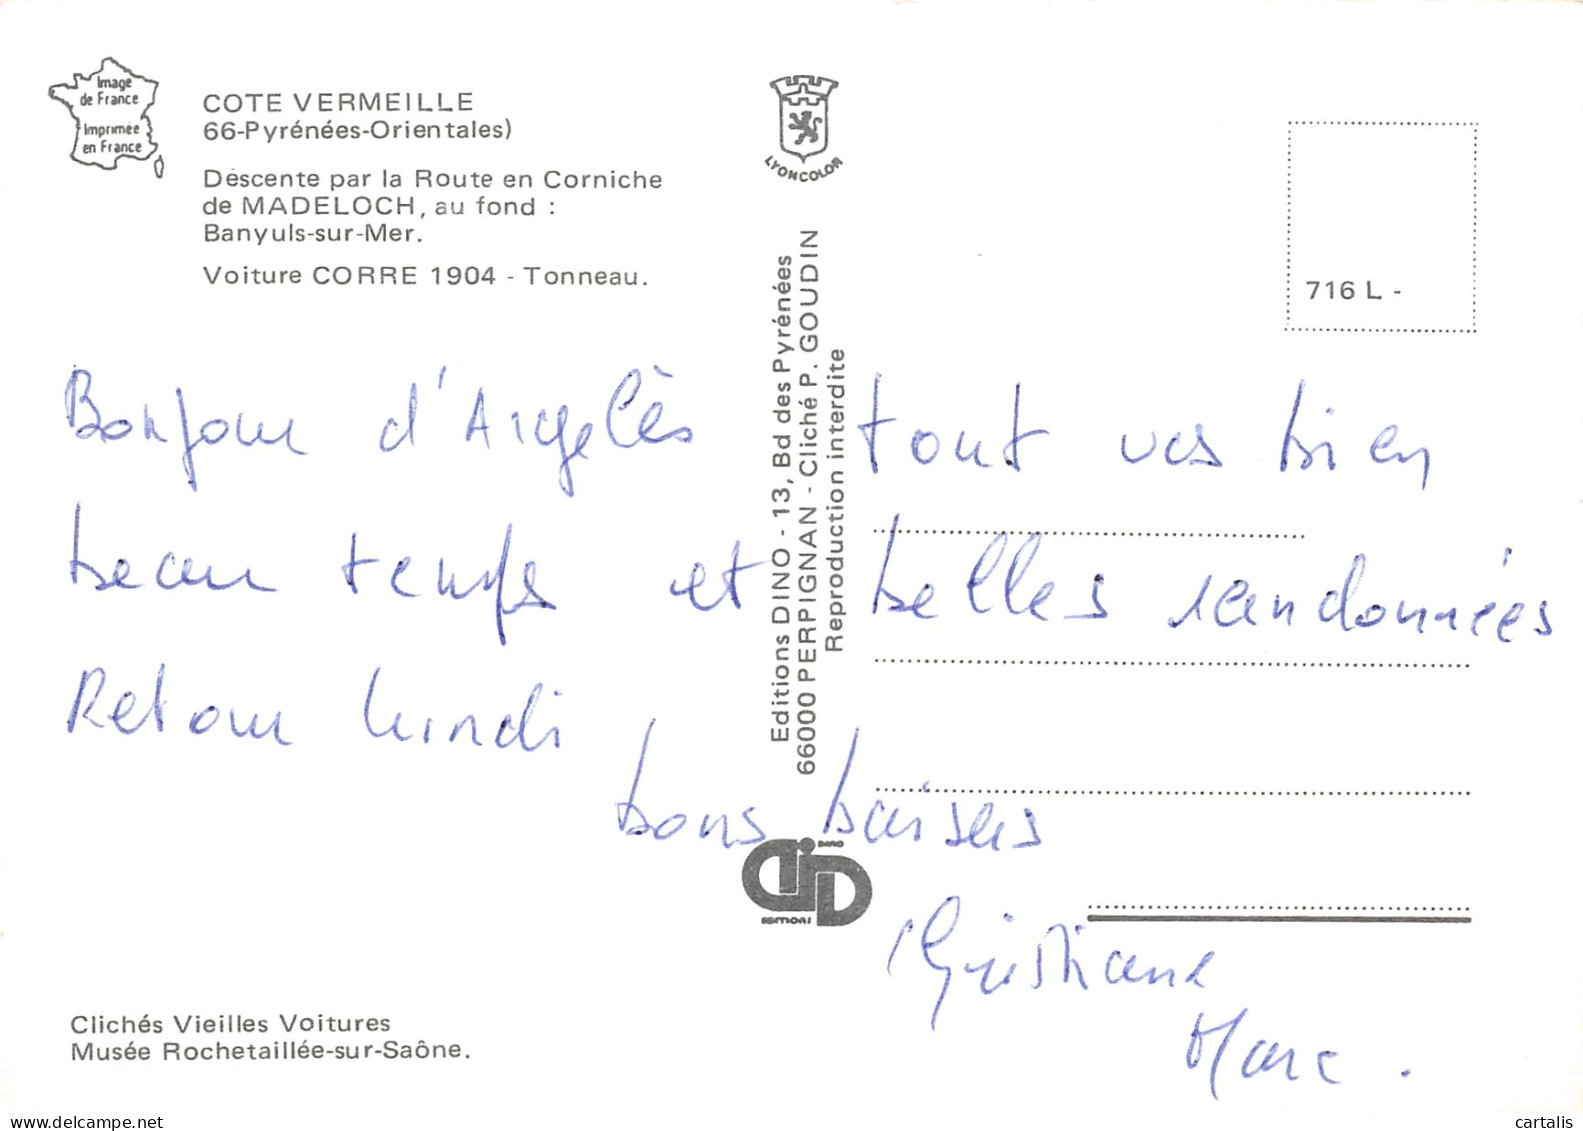 Image
de France
Imprimée
en France
COTE VERMEILLE
66-Pyrénées-Orientales)
Descente par la Route en Corniche
de MADELOCH, au fond :
Banyuls-sur-Mer.
Voiture CORRE 1904 - Tonneau.
LYONCOLOR
716 L -
Editions DINO - 13, Bd des Pyrénées
66000 PERPIGNAN - Cliché P. GOUDIN
Reproduction interdite
Bonjour d'Argelès tout vas bien
beau temps et belles randonnées
Retour lundi
bons baisers
DINO
EDITIONS
Christiane
Marc.
Clichés Vieilles Voitures
Musée Rochetaillée-sur-Saône.
www.delcampe.net
cartalis